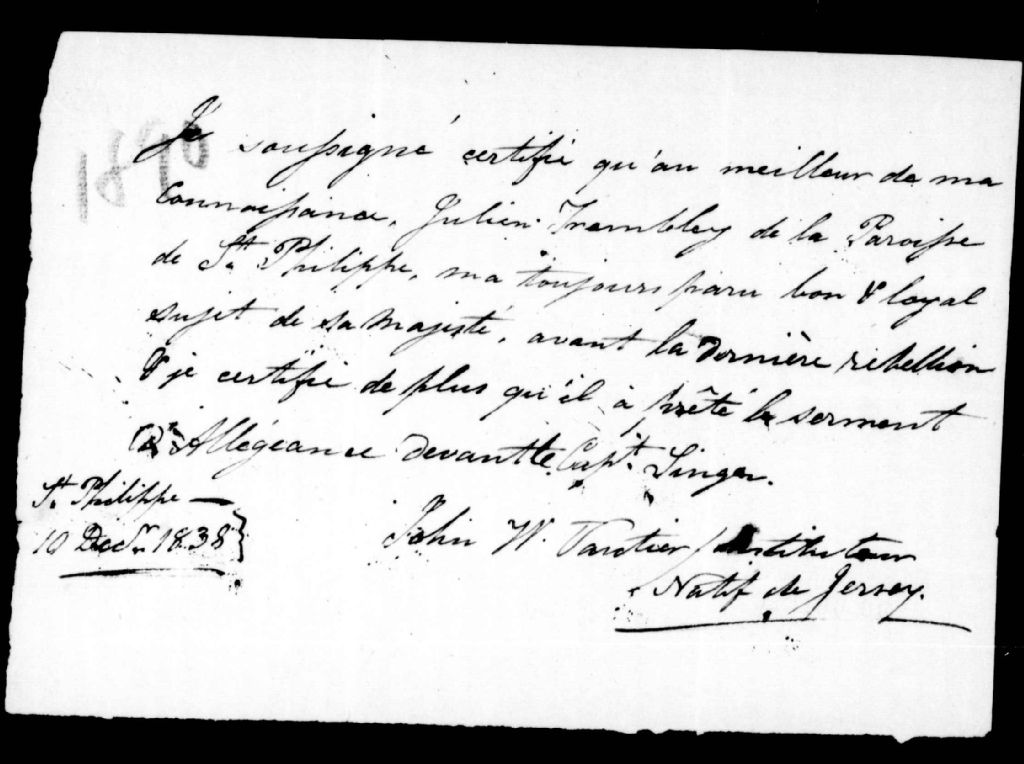 1890
Je soussigné certifie qu'au meilleur de ma
Connaissance, Julien Trembley de la Paroisse
de St Philippe, ma toujours paru bon & loyal
sujet de sa Majesté, avant la dernière rebellion
& je certifie de plus qu'il à prêté le serment
d'Allégeance devant le Capt. Singer.
St. Philippe —
10 Decr. 1838
John W. Vautier Instituteur
Natif de Jersey.